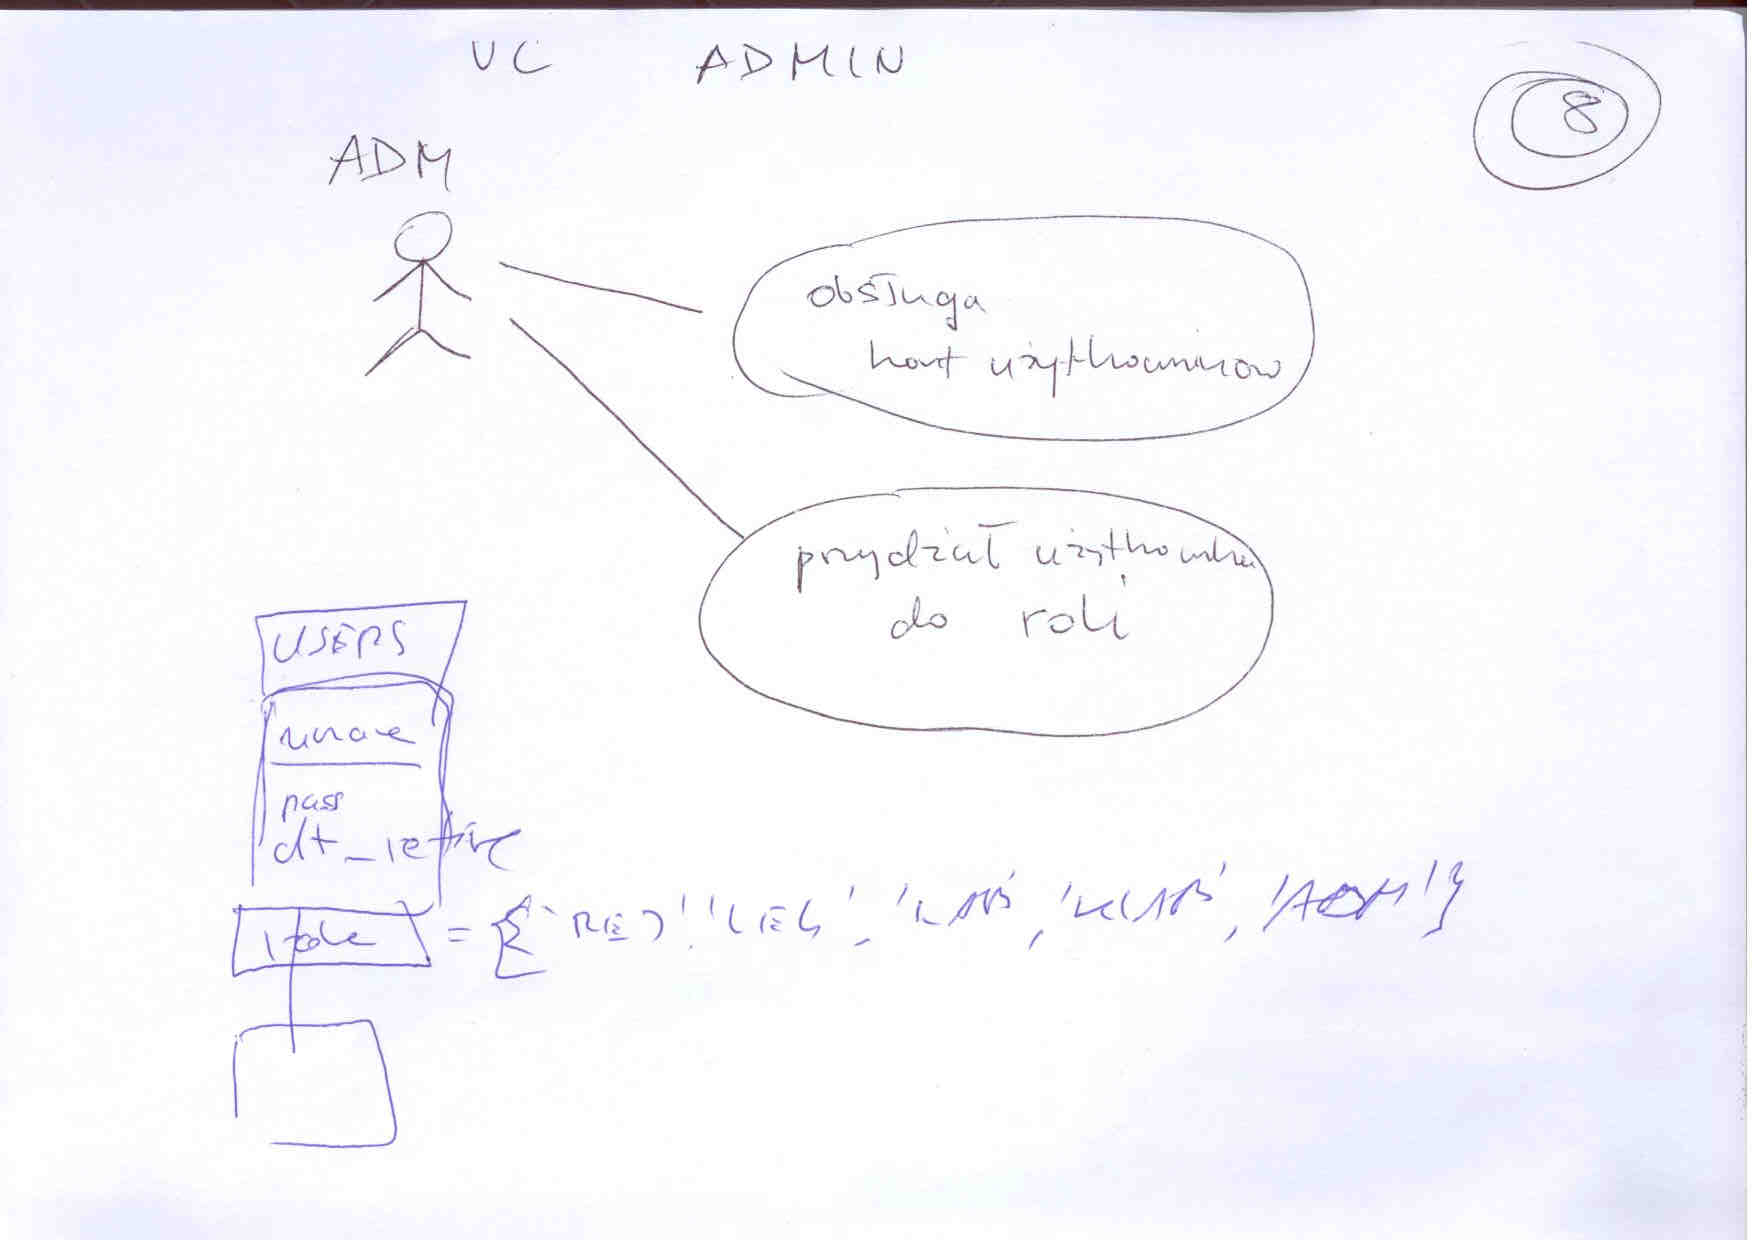 UC ADMIN
8
ADM
obsługa
kont użytkowników
przydział użytkownika
do roli
USERS
uname
pass
dt_retire
role = { 'REJ', 'LEK', 'LAB', 'KLAB', 'ADM' }